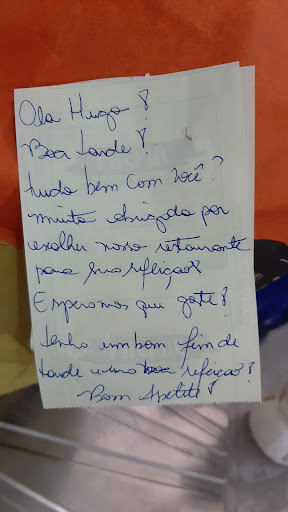 Ola Hugo!
Boa tarde!
tudo bem com você?
muito obrigada por
escolher nosso restaurante
para sua refeição!
Esperamos que goste!
tenha um bom fim de
tarde e uma boa refeiçao!
Bom Apetite!